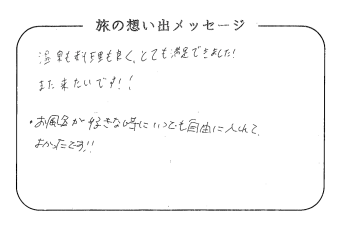 旅の想い出メッセージ
温泉もお料理も良く、とても満足できました!
また来たいです!!
・お風呂が好きな時にいつでも自由に入れて、
よかったです!!